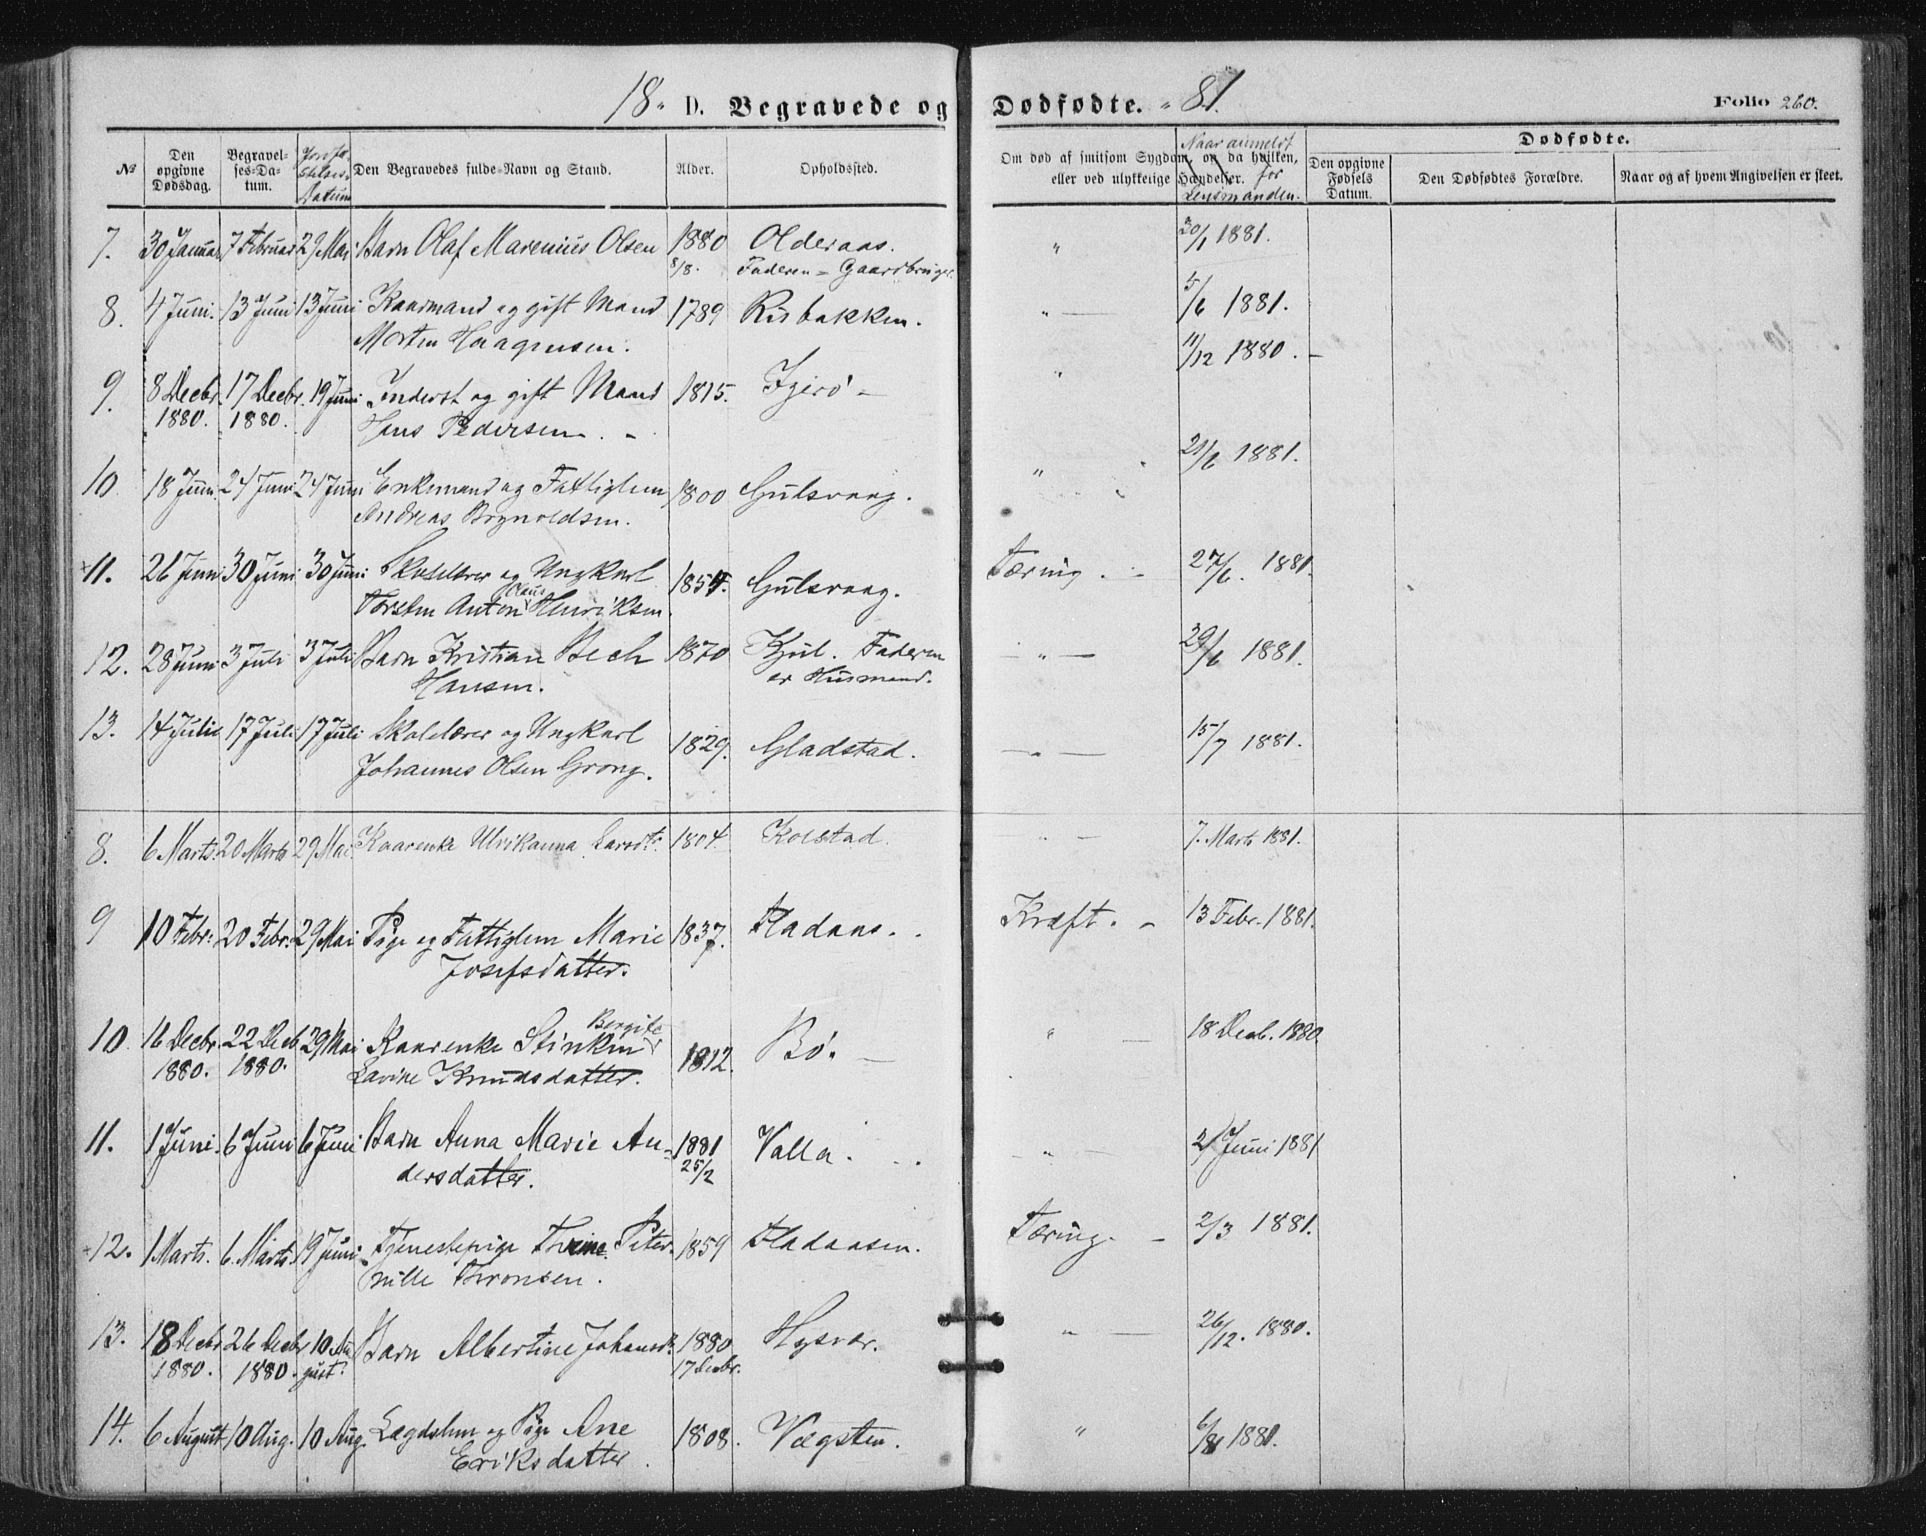 18 „ D. Begravede og Dødfødte. „ 81.
Folio 260.
No
Den opgivne Dødsdag.
Begravelses-Datum.
Jordfæstelses-Datum
Den Begravedes fulde Navn og Stand.
Alder.
Opholdssted.
Om død af smitsom Sygdom, og da hvilken, eller ved ulykkelige Hændelser.
Naar anmeldt for Lensmanden.
Dødfødte.
Den opgivne Fødsels Datum.
Den Dødfødtes Forældre.
Naar og af hvem Angivelsen er skeet.
7. 30 Januar 7 Februar 29 Mai Barn Olaf Marenius Olsen 1880 Olderaas. „ 20/1 1881.
8/8. Faderen = Gaardbruger.
8. 4 Juni. 13 Juni 13 Juni Kaarmand og gift Mand 1789 Risbakken. „ — 5/6 1881.
Morten Haagensen.
9. 8 Decbr. 17 Decbr. 19 Juni Inderst og gift Mand 1815. Igerø — „ 11/12 1880. –
1880. 1880. Hans Pedersen. –
10 18 Juni. 24 Juni 24 Juni Enkemand og Fattiglem 1800 Gulsvaag. „ 21/6 1881.
Andreas Brynoldsen.
+11. 26 Juni 30 Juni 30 Juni Skolelærer og Ungkarl 1854. Gulsvaag. Tæring. – 27/6. 1881.
Claus
Torsten Anton Henriksen.
12. 28 Juni 3 Juli 3 Juli Barn Kristian Bech 1870 Kjul. Faderen — „ — 29/6 1881.
Hansen. er Husmand.
13. 14 Juli 17 Juli 17 Juli Skolelærer og Ungkarl 1829. Gladstad. — „ — 15/7 1881.
Johannes Olsen Grong.
8. 6 Marts. 20 Marts 29 Mai Kaarenke Ulrikanna Larsdtr. 1804. Kolstad. „ – 7. Marts 1881.
9 10 Febr: 20 Febr: 29 Mai Pige og Fattiglem Marie 1837. Fladaas. . Kræft. – 13 Febr. 1881.
Josefsdatter.
Bergite
10 16 Decbr. 22 Decb 29 Mai Kaarenke Stinken 1812. Bø. — „ — 18 Decb. 1880
1880. 1880. Lavine Knudsdatter.
11. 1 Juni. 6 Juni 6 Juni Barn Anna Marie An- 1881 Valla. — „ — 2/ Juni 1881
dersdatter. 25/2
+12. 1 Marts. 6 Marts 19 Juni Tjenestepige Trine Peter- 1859 Fladaasen. Tæring. – 2/3 1881.
nille Thronsen.
13. 18 Decbr 26 Decbr 10 Au- Barn Albertine Johansdr. 1880 Hysvær. „ — 26/12. 1880.
1880. 1880. gust. 17 Decbr.
14. 6 August 10 Aug. 10 Aug. Lægdslem og Pige Ane 1808. Vægsten. „ 6/8 1881.
Eriksdatter.